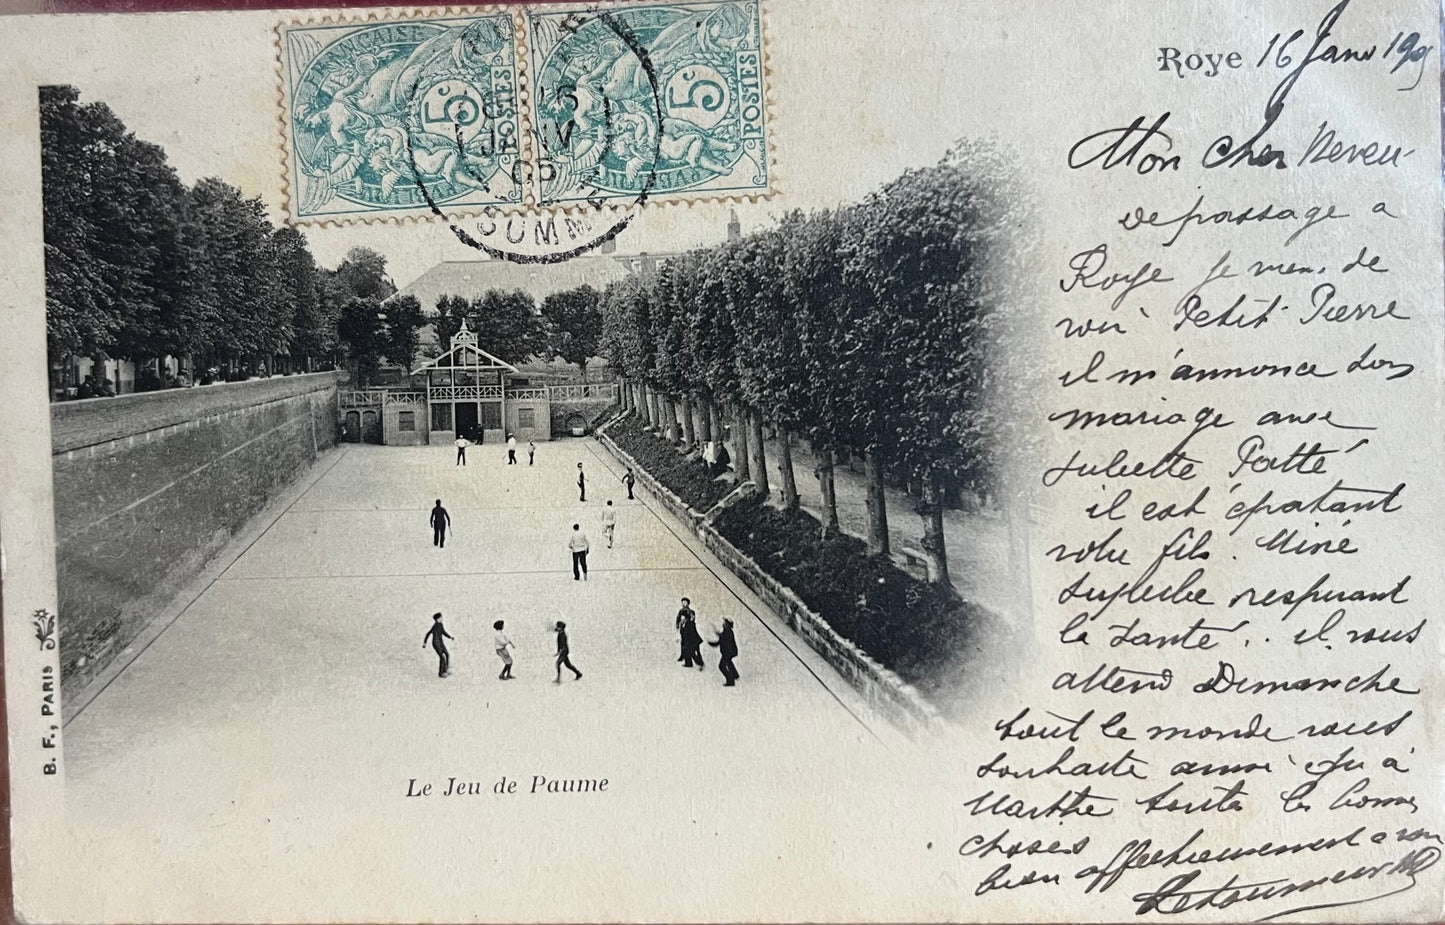 FRANÇAISE
5c
POSTES
5c
POSTES
15
JANV
05
SOMME
Roye 16 Janv 1905
Mon cher Neveu
De passage a
Roye je viens de
voir Petit Pierre
il m'annonce son
mariage avec
Juliette
il est épatant
votre fils. Mine
superbe respirant
la santé.. il vous
attend Dimanche
tout le monde vous
souhaite ainsi qu'à
Marthe toutes les bonnes
choses
bien affectueusement a vous
Le Jeu de Paume
B. F., PARIS